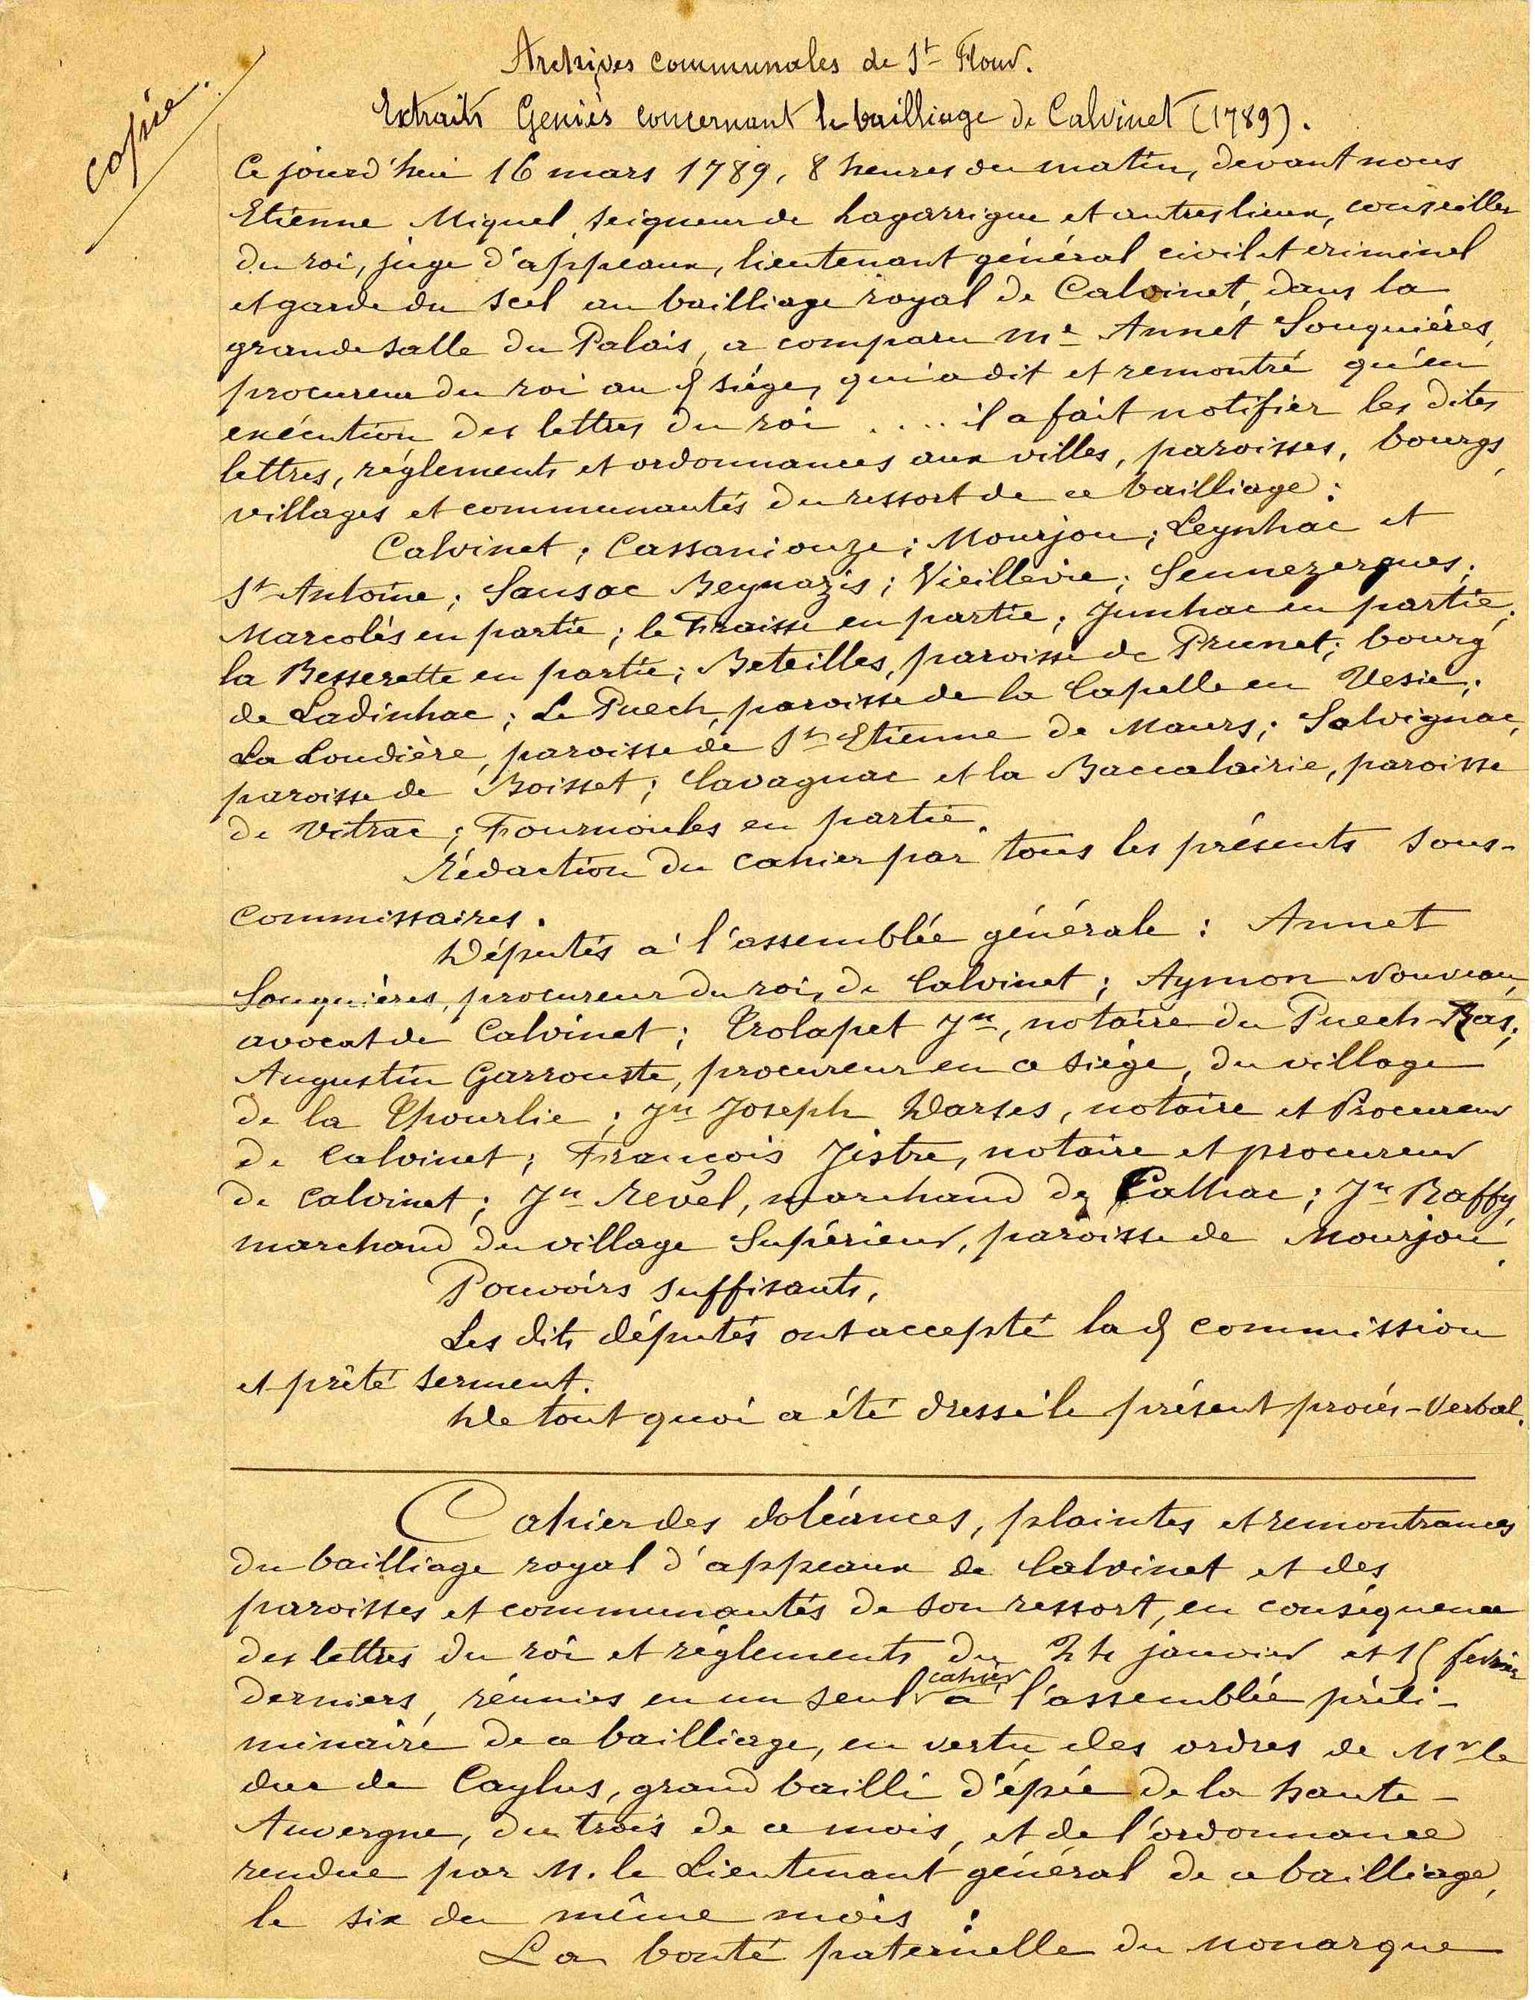 copie.
Archives communales de St Flour.
Extraits Geniès concernant le bailliage de Calvinet (1789).
Ce jourd'hui 16 mars 1789, 8 heures du matin, devant nous
Etienne Miquel, seigneur de Lagarrigue et autres lieux, conseiller
du roi, juge d'appeaux, lieutenant général civil et criminel
et garde du scel au bailliage royal de Calvinet, dans la
grande salle du Palais, a comparu Me Annet Souquières,
procureur du roi au d siège, qui a dit et remontré qu'en
exécution des lettres du roi .... il a fait notifier les dites
lettres, réglements et ordonnances aux villes, paroisses, bourgs,
villages et communautés du ressort de ce bailliage :
Calvinet ; Cassaniouze ; Mourjou ; Leynhac et
St Antoine ; Sansac Veynazis ; Vieillevie ; Sennezergues ;
Marcolès en partie ; le Fraisse en partie ; Junhac en partie ;
la Besserette en partie ; Beteilles, paroisse de Prunet ; bourg
de Ladinhac ; Le Puech, paroisse de la Capelle en Vesie ;
La Loudière, paroisse de St Etienne de Maurs ; Salvignac,
paroisse de Boisset ; Lavagnac et la Baccalairie, paroisse
de Vitrac ; Fournoules en partie.
Rédaction du cahier par tous les présents sous-
commissaires.
Députés à l'assemblée générale : Annet
Souquières, procureur du roi, de Calvinet ; Aymon Nouveau,
avocat de Calvinet ; Trolapet Jn, notaire du Puech-Bas ;
Augustin Garrouste, procureur en ce siège, du village
de la Thourlie ; Jn Joseph Darses, notaire et Procureur
de Calvinet ; François Jistre, notaire et procureur
de Calvinet ; Jn Revel, marchand de Calhac ; Jn Raffy,
marchand du village Supérieur, paroisse de Mourjou.
Pouvoirs suffisants.
Les dits députés ont accepté lad commission
et prêté serment.
De tout quoi a été dressé le présent procès-verbal.
Cahier des doléances, plaintes et remontrances
du bailliage royal d'appeaux de Calvinet et des
paroisses et communautés de son ressort, en conséquence
des lettres du roi et réglements du 24 janvier et 15 février
derniers, réunies en un seul cahier à l'assemblée préli-
minaire de ce bailliage, en vertu des ordres de Mr le
duc de Caylus, grand bailli d'épée de la haute-
Auvergne, du trois de ce mois, et de l'ordonnance
rendue par M. le Lieutenant général de ce bailliage,
le six du même mois :
La bonté paternelle du monarque